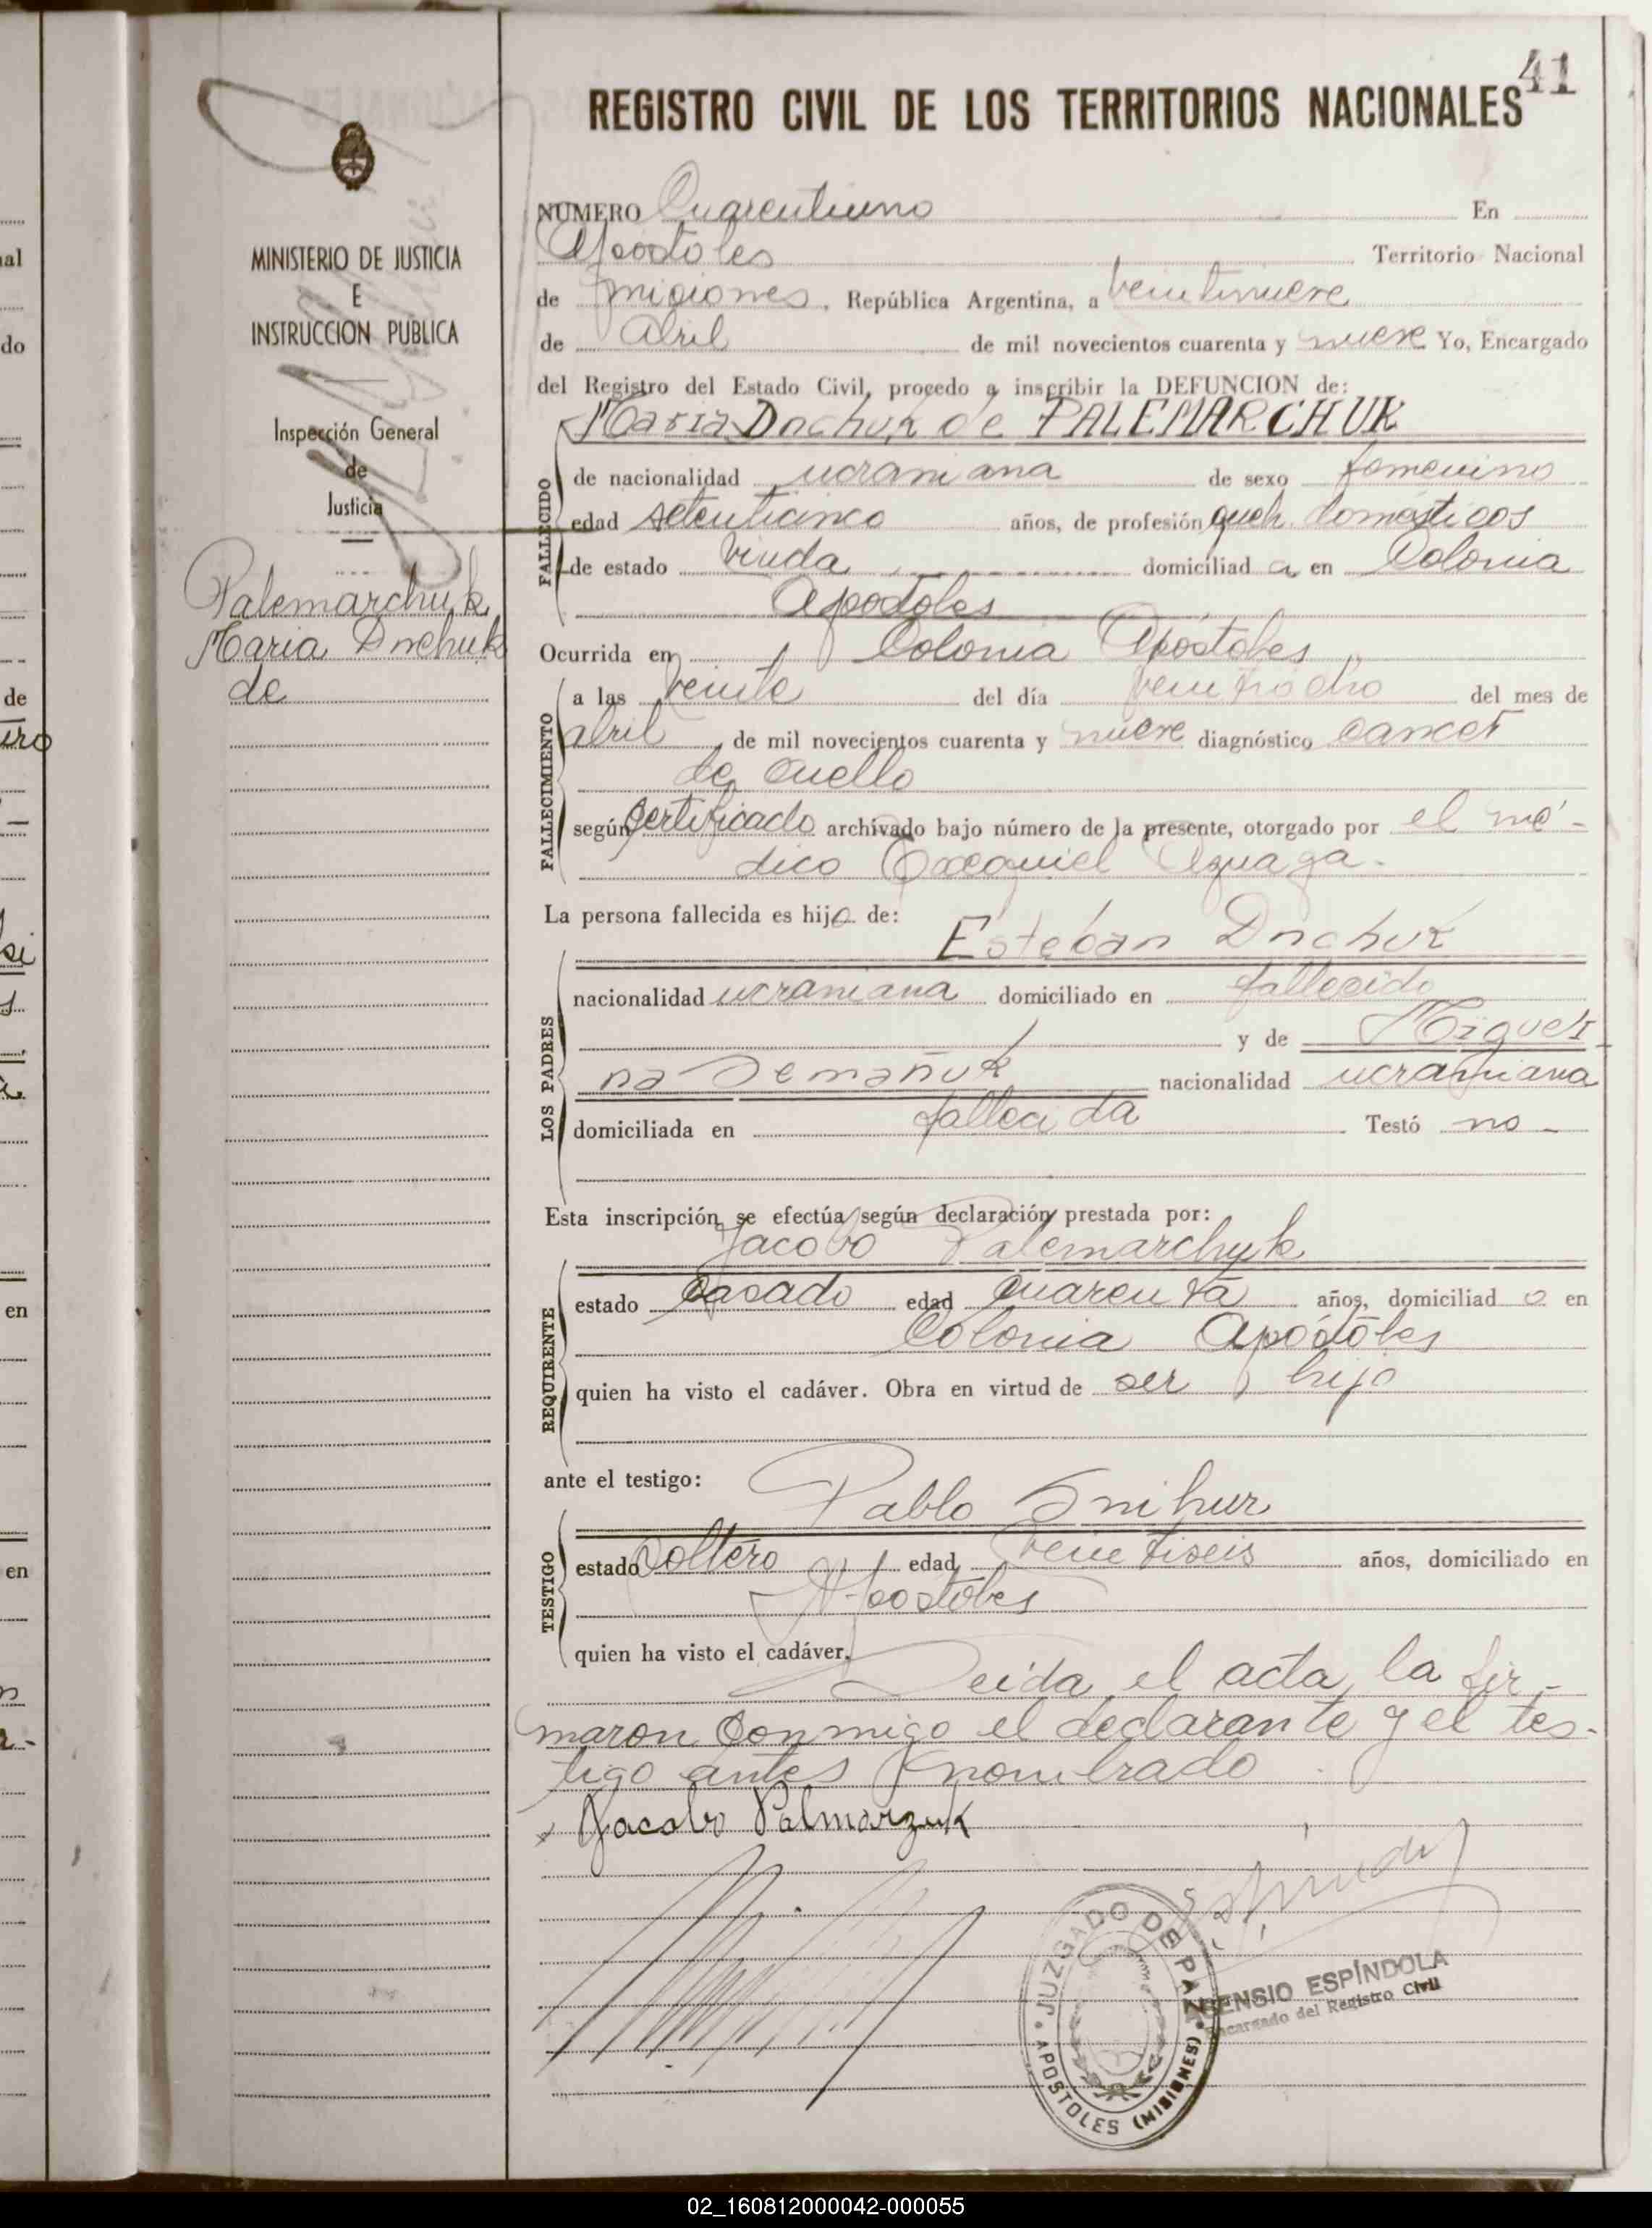 41
REGISTRO CIVIL DE LOS TERRITORIOS NACIONALES
MINISTERIO DE JUSTICIA
E
INSTRUCCION PUBLICA
Inspección General
de
Justicia
Palemarchuk
Maria Dnchuk
de
NUMERO Cuarentiuno En
Apostoles Territorio Nacional
de misiones, República Argentina, a veintinueve
de abril de mil novecientos cuarenta y nueve Yo, Encargado
del Registro del Estado Civil, procedo a inscribir la DEFUNCION de:
Maria Dnchuk de PALEMARCHUK
FALLECIDO
de nacionalidad ucraniana de sexo femenino
edad setenticinco años, de profesión queh. domésticos
de estado viuda domiciliad a en Colonia
Apostoles
Ocurrida en Colonia Apostoles
FALLECIMIENTO
a las veinte del día veintiocho del mes de
abril, de mil novecientos cuarenta y nueve diagnóstico cancer
de cuello
según certificado archivado bajo número de la presente, otorgado por el mé-
dico Exequiel Azuaga.
La persona fallecida es hija de:
Esteban Dnchuk
LOS PADRES
nacionalidad ucraniana domiciliado en fallecido
y de Migueli
na Semañuk nacionalidad ucraniana
domiciliada en fallecida Testó no -
Esta inscripción se efectúa según declaración prestada por:
Jacobo Palemarchuk
REQUIRENTE
estado casado edad cuarenta años, domiciliad o en
Colonia Apóstoles
quien ha visto el cadáver. Obra en virtud de ser hijo
ante el testigo:
Pablo Snihur
TESTIGO
estado soltero edad veintiseis años, domiciliado en
Apostoles
quien ha visto el cadáver.
Leida el acta, la fir-
maron conmigo el declarante y el tes-
tigo antes nombrado.
Jacobo Palmarzuk
JUZGADO DE PAZ
APOSTOLES (MISIONES)
ASENSIO ESPÍNDOLA
Encargado del Registro Civil
02_160812000042-000055